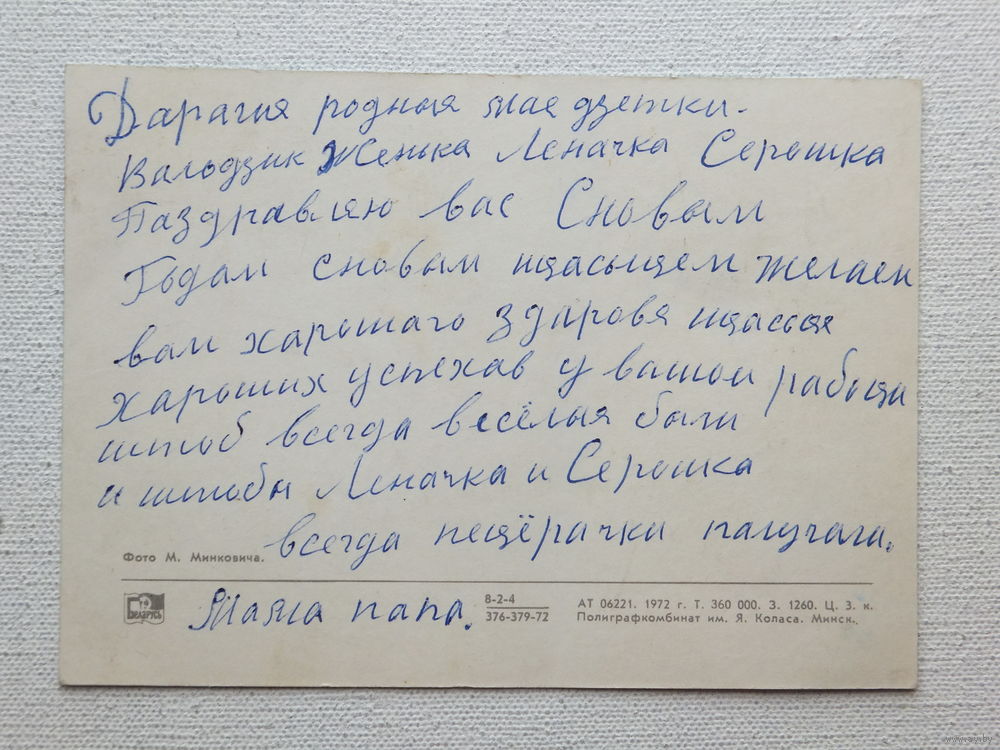 Дарагия родныя мае дзетки.
Валодзик Женька Леначка Серошка
Паздравляю вас Сновым
Годам сновым щасьцем желаем
вам харошаго здаровя щасьця
хароших успехав у вашой рабоци
штоб всегда весёлыя были
и штобы Леначка и Серошка
всегда пецёрачки палучала.
Фото М. Минковича.
БЕЛАРУСЬ
Мама папа.
8-2-4
376-379-72
АТ 06221. 1972 г. Т. 360 000. З. 1260. Ц. 3. к.
Полиграфкомбинат им. Я. Коласа. Минск.